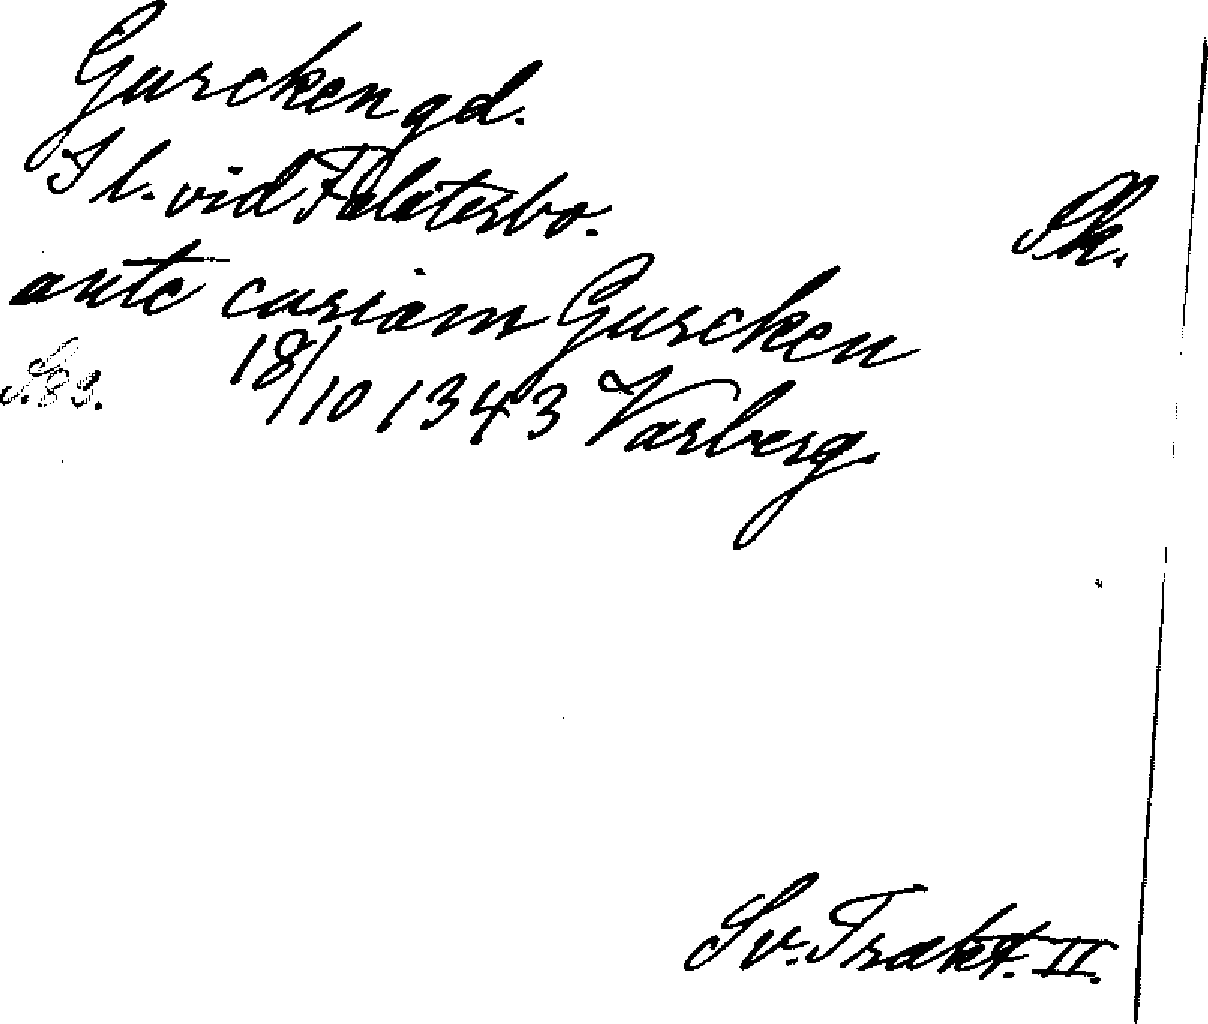 Gurcken gd.
Sl. vid Falsterbo.
Sk.
ante curiam Gurcken
S. 89.
18/10 1343 Varberg.
Sv. Trakt. II.